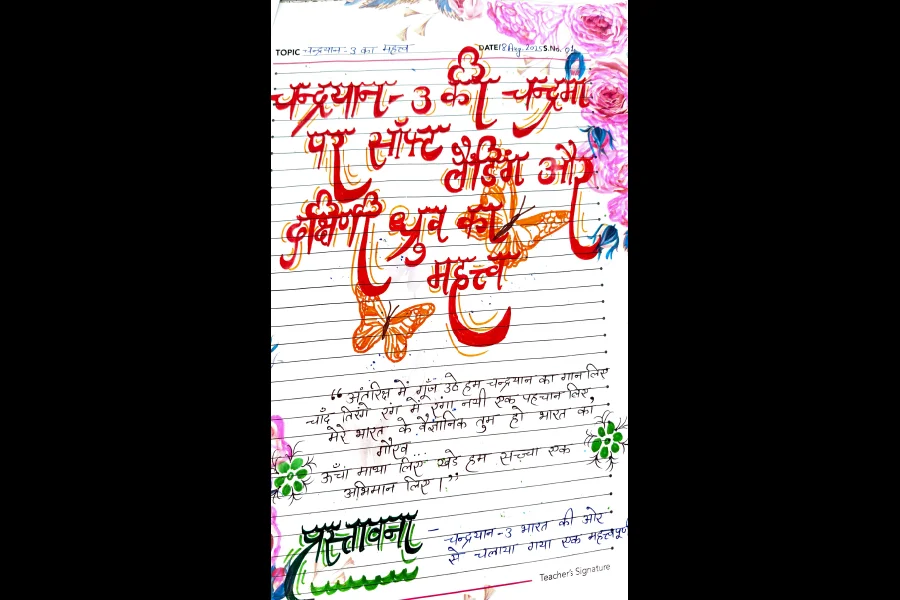 TOPIC चन्द्रयान - 3 का महत्व DATE 18 Aug. 2025 S.No. 01
चन्द्रयान - 3 की चन्द्रमा
पर सॉफ्ट लैंडिंग और
दक्षिणी ध्रुव का
महत्त्व
“अंतरिक्ष में गूँज उठे हम चन्द्रयान का गान लिए
चाँद तिरंगे रंग में रंगा, नयी एक पहचान लिए,
मेरे भारत के वैज्ञानिक तुम हो भारत का,
गौरव...
ऊँचा माथा लिए खड़े हम सच्चा एक
अभिमान लिए।”
प्रस्तावना – चन्द्रयान - 3 भारत की ओर
से चलाया गया एक महत्वपूर्ण
Teacher's Signature